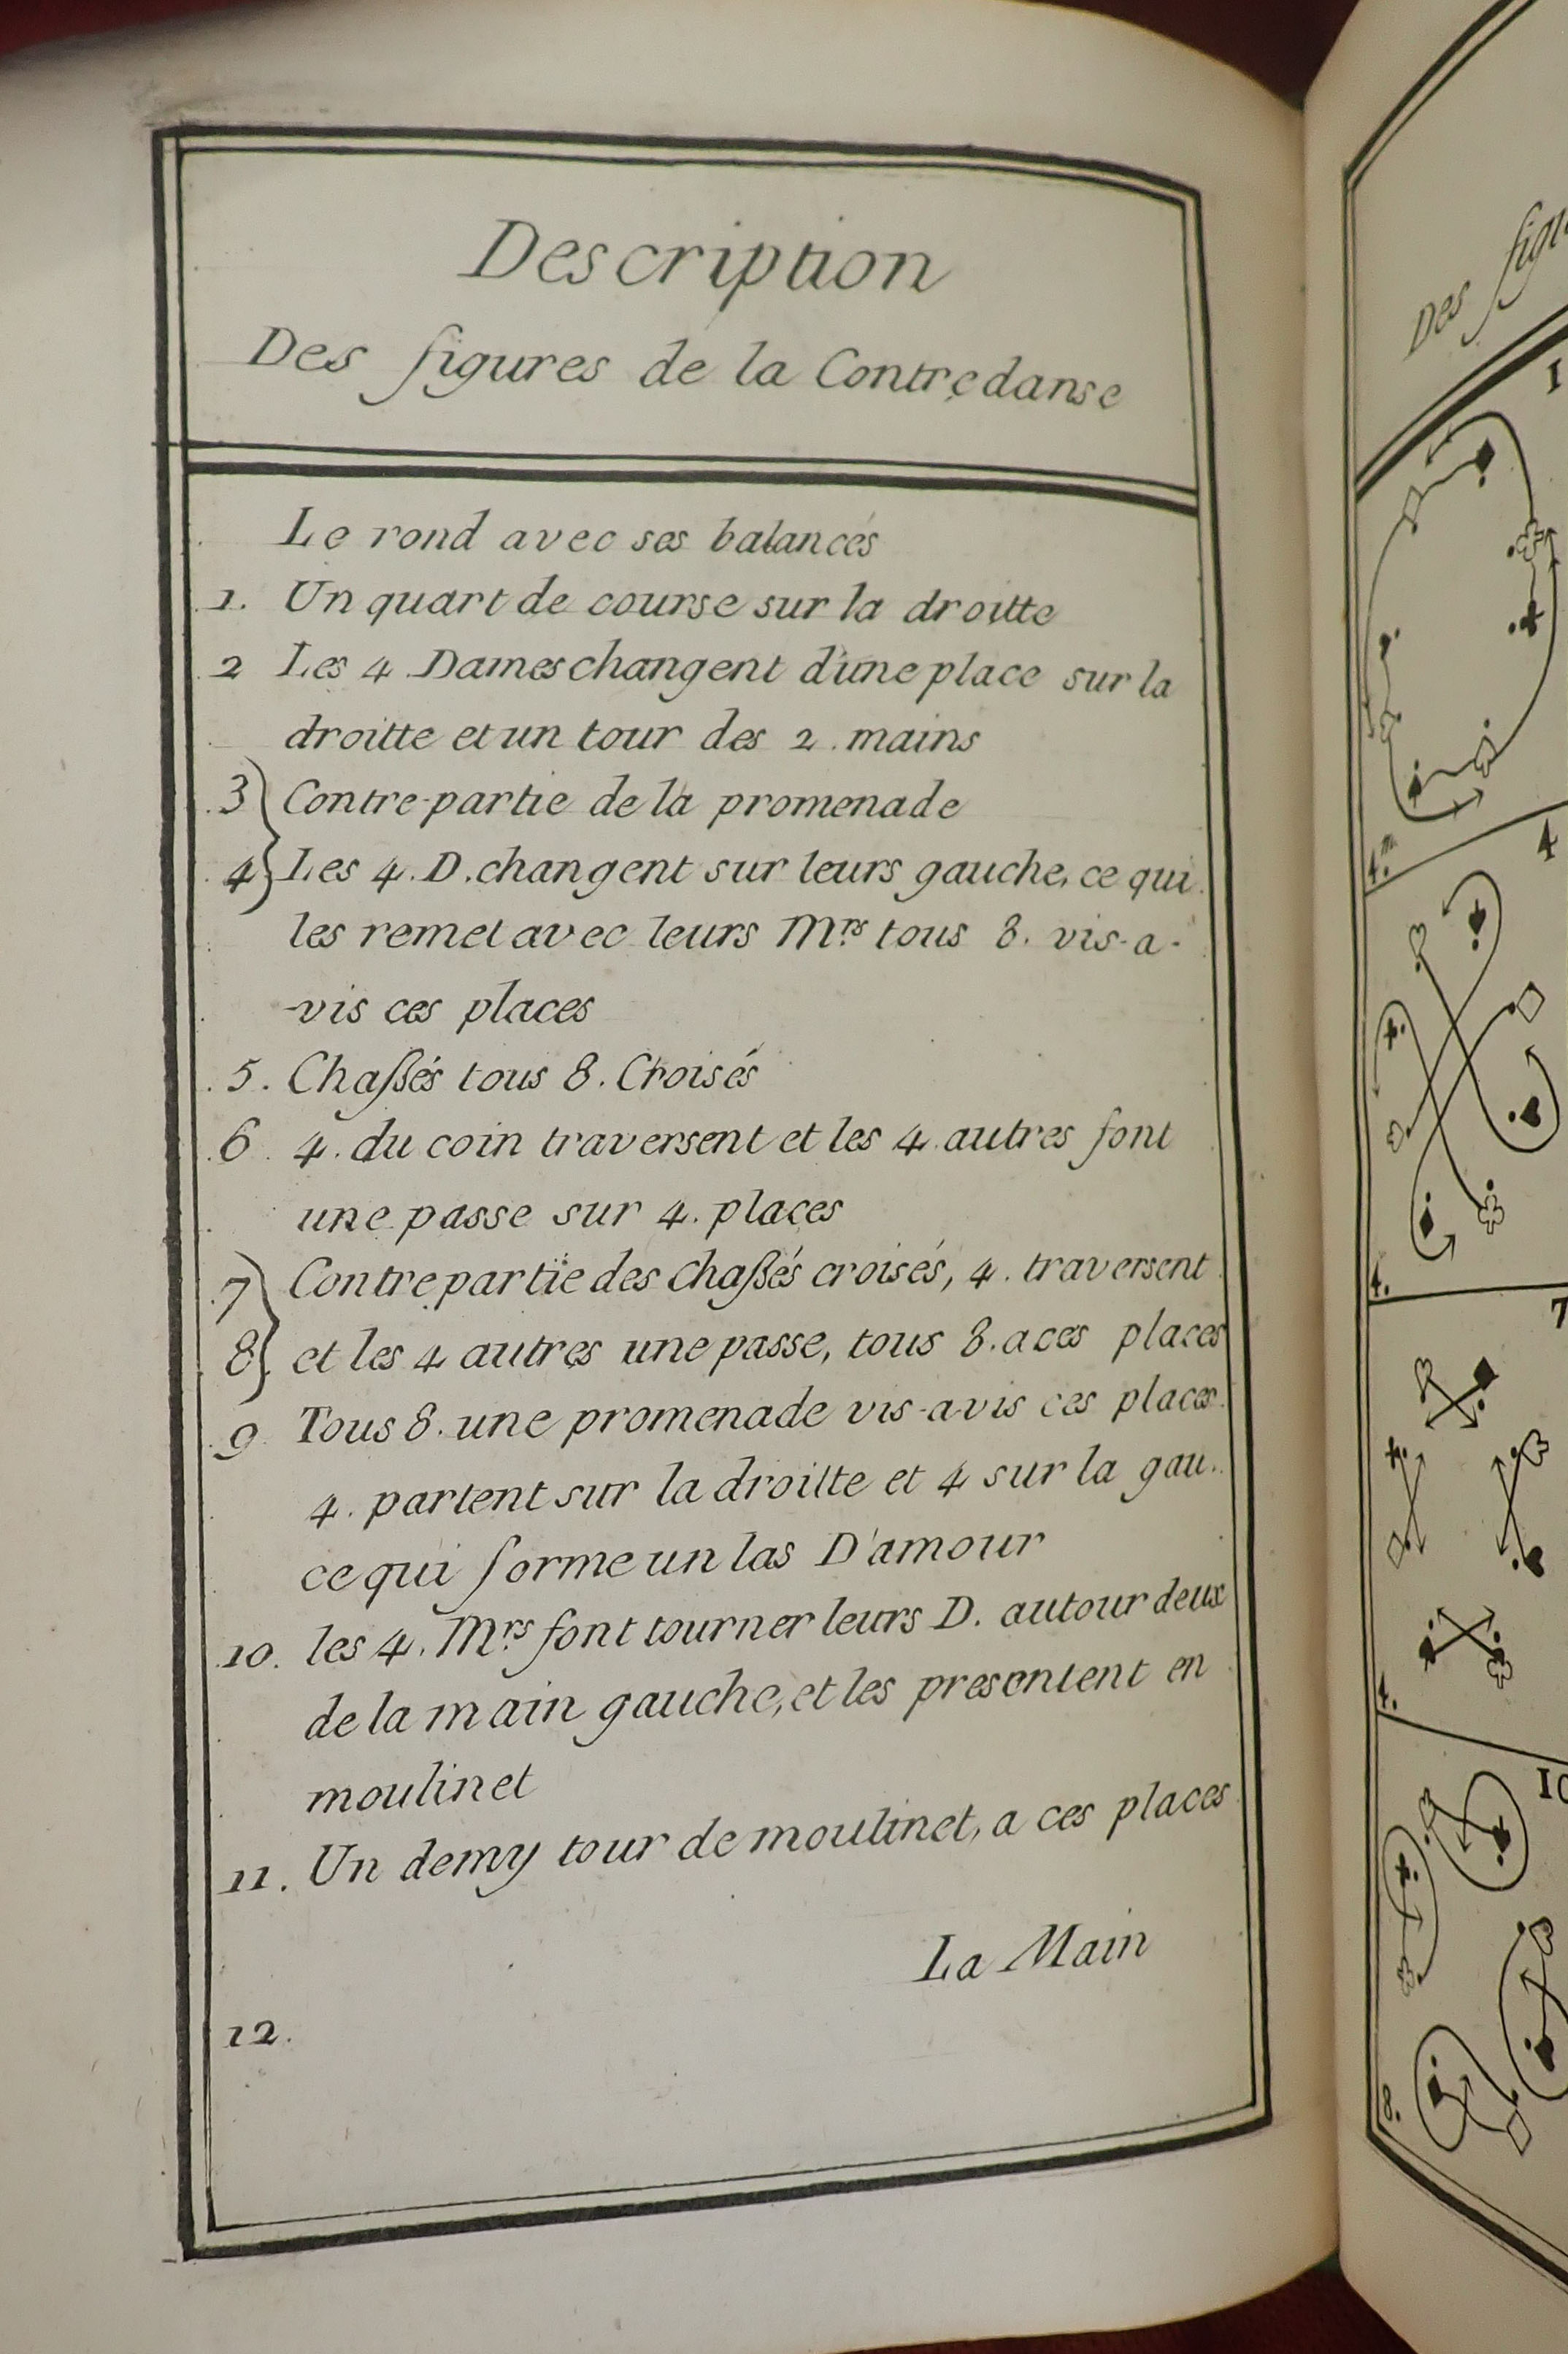 Description
Des figures de la Contredanse
Le rond avec ses balancés
1. Un quart de course sur la droitte
2 Les 4 Dames changent d'une place sur la
droitte et un tour des 2. mains
3 Contre-partie de la promenade
4 Les 4. D. changent sur leurs gauche, ce qui
les remet avec leurs Mrs tous 8. vis-a-
-vis ces places
5. Chaßés tous 8. Croisés
6 4. du coin traversent et les 4 autres font
une passe sur 4. places
7 Contrepartie des chaßés croisés, 4. traversent
8 et les 4 autres une passe, tous 8. a ces places
9 Tous 8. une promenade vis-avis ces places.
4. partent sur la droitte et 4 sur la gau..
ce qui forme un las D'amour
10. les 4. Mrs font tourner leurs D. autour deux
de la main gauche, et les presentent en
moulinet
11. Un demy tour de moulinet, a ces places
La Main
12.
Des figu
1
4
4.
7
4.
10
8.